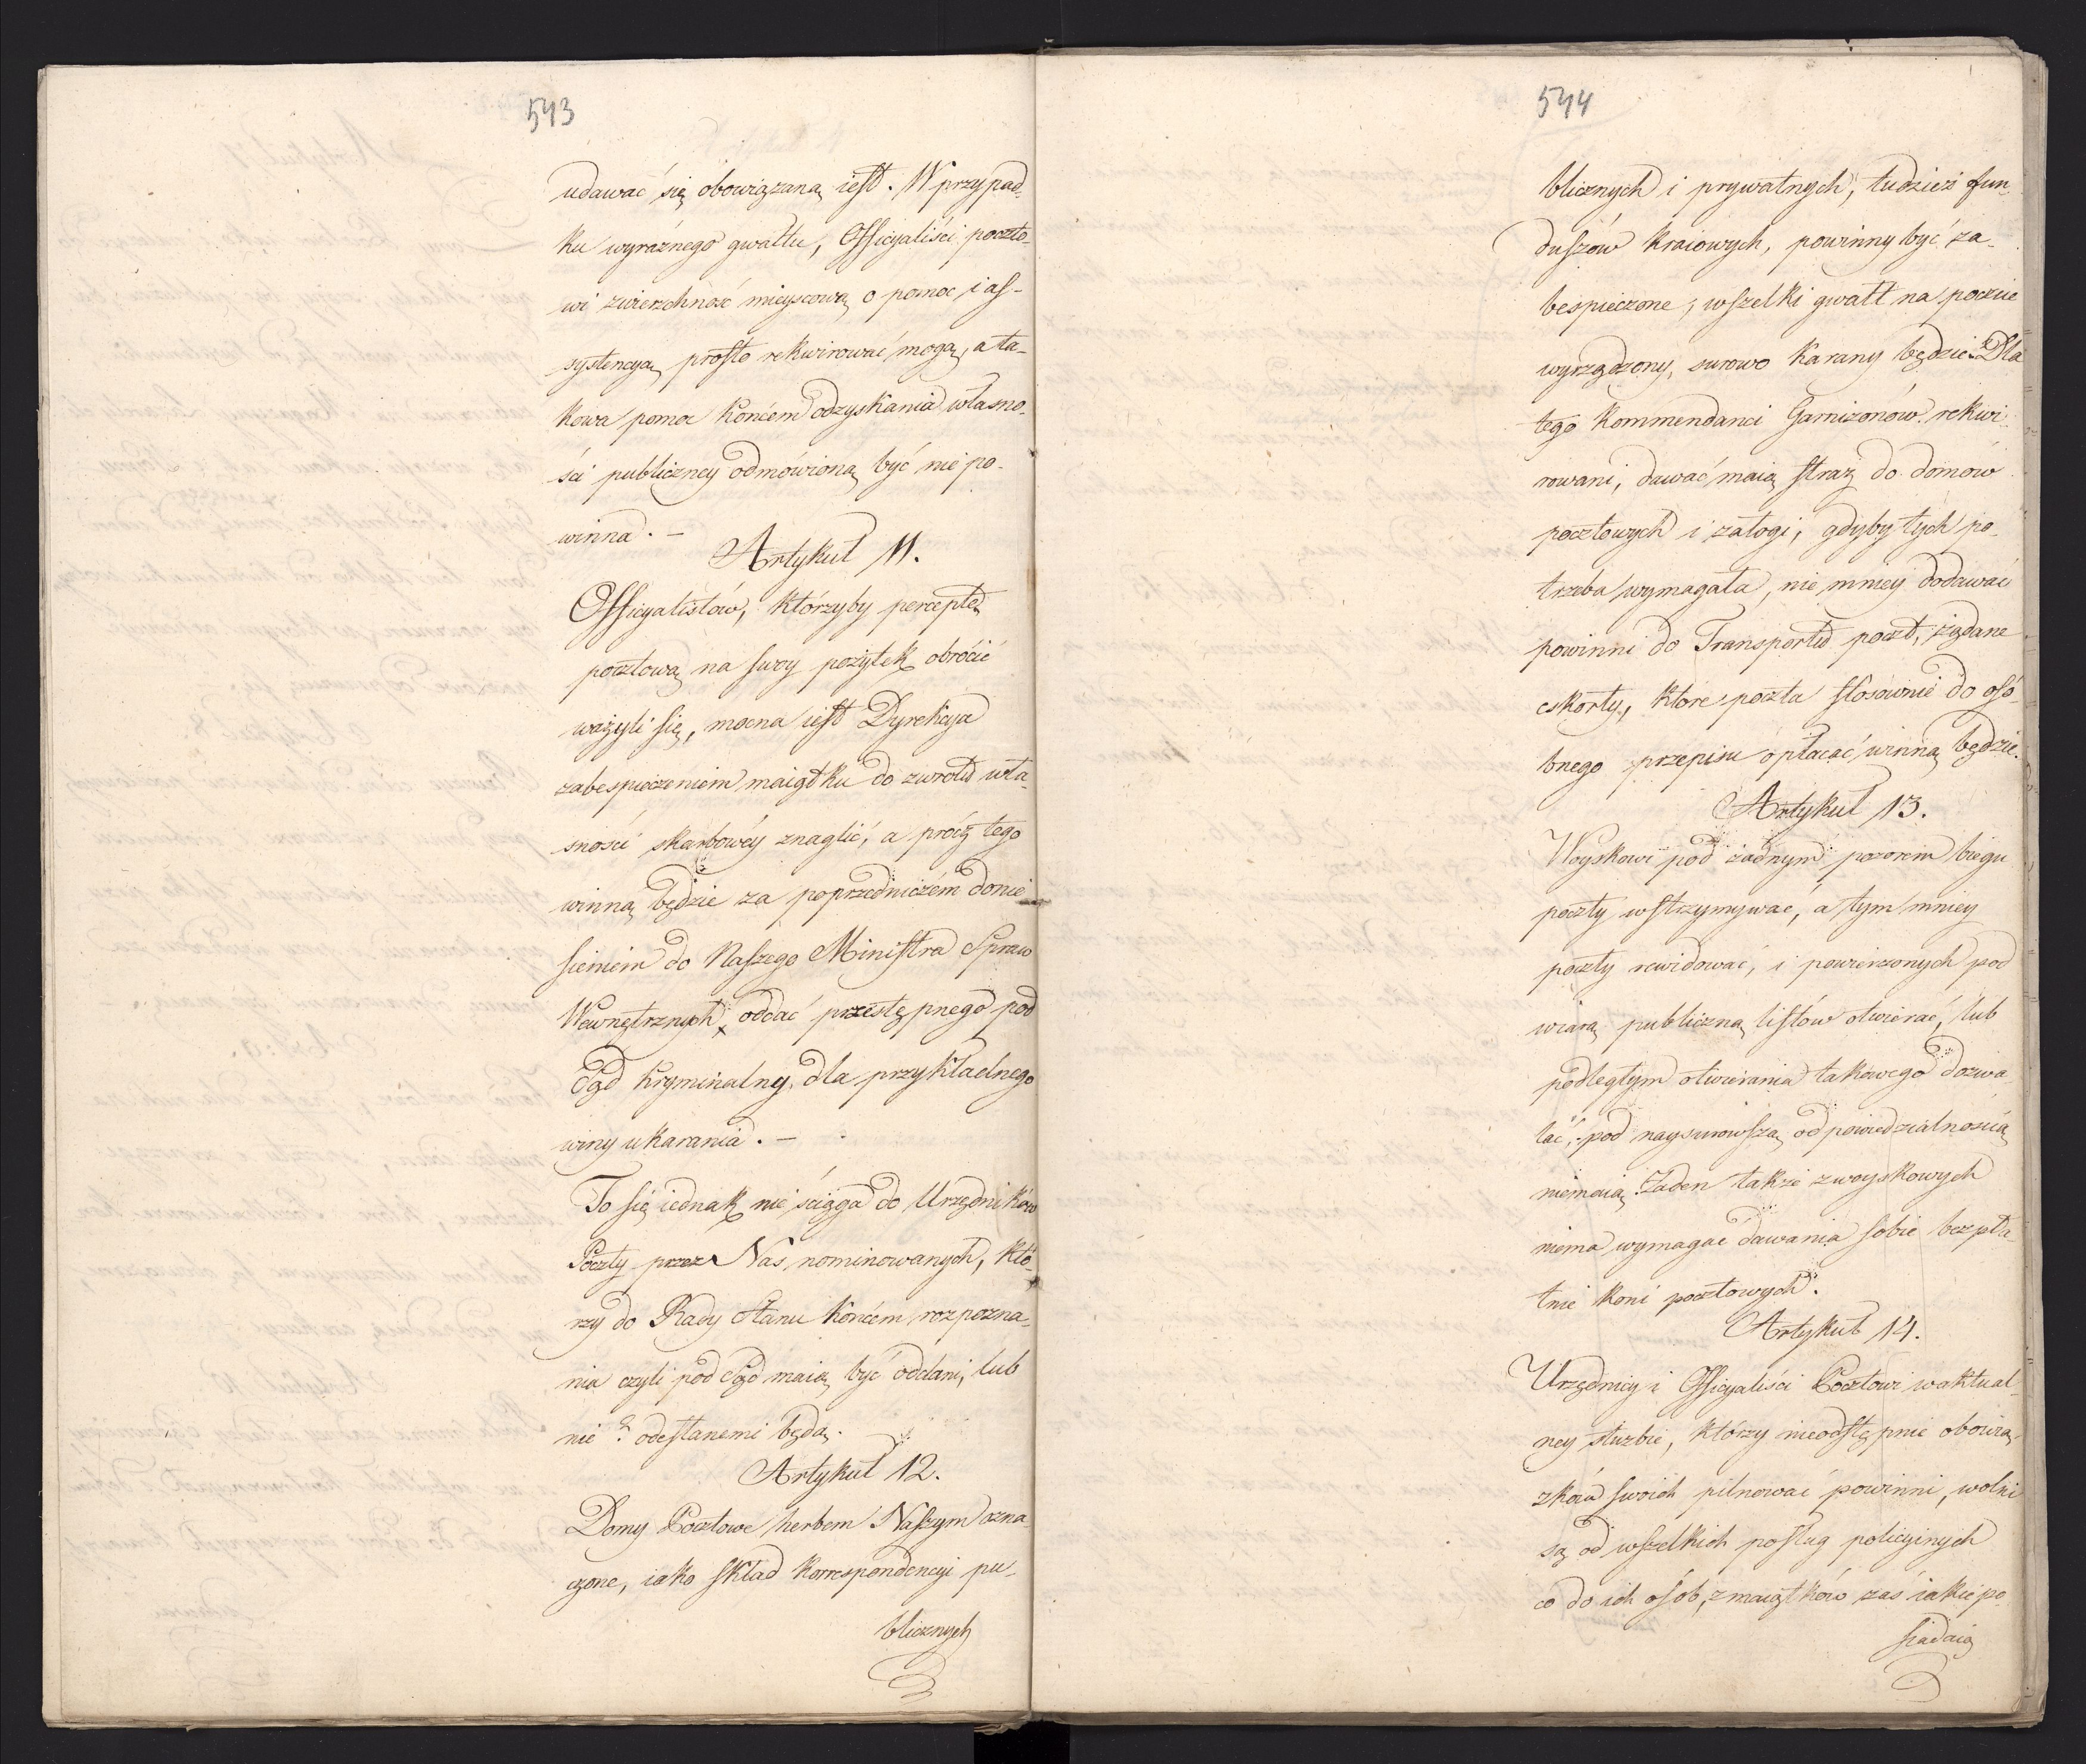 543
udawać się obowiązaną iest. W przypad-
ku wyraźnego gwałtu, Officyaliści poczto-
wi zwierzchność mieyscową o pomoc i as-
systencyą prosto rekwirować mogą, a ta-
kowa pomoc końcem odzyskania własno-
ści publiczney odmówioną być nie po-
winna. —
Artykuł 11.
Officyalistów, którzyby perceptę
pocztową na swoy pożytek obrócić
ważyli się, mocna iest Dyrekcya
zabespieczeniem maiątku do zwrotu wła-
sności skarbowéy znaglić, a prócz tego
winną będzie za poprzedniczém donie
sieniem do Naszego Ministra Spraw
Wewnętrznych oddać przestępnego pod
Sąd kryminalny, dla przykładnego
winy ukarania. —
To się iednak nie ściąga do Urzędników
Poczty przez Nas nominowanych, któ-
rzy do Rady Stanu końcem rozpozna-
nia czyli pod Sąd maią być oddani, lub
nie? odesłanemi będą.
Artykuł 12.
Domy Pocztowe herbem Naszym ozna-
czone, iako skład korrespondencyi pu-
blicznych
544
blicznych i prywatnych, tudzież fun-
duszów kraiowych, powinny być za-
bespieczone, wszelki gwałt na poczcie
wyrządzony, surowo karany będzie. Dla
tego Kommendanci Garnizonów rekwi-
rowani, dawać maią straż do domów
pocztowych i załogi, gdyby tych po-
trzeba wymagała, nie mniey dodawać
powinni do Transportu poczt, żądane
eskorty, które poczta stosownie do osó-
bnego przepisu opłacać winną będzie.
Artykuł 13.
Woyskowi pod żadnym pozorem biegu
poczty wstrzymywać, a tym mniey
poczty rewidować, i powierzonych pod
wiarą publiczną listów otwierać, lub
podległym otwierania takowego dozwa-
lać, pod naysurowszą odpowiedzialnością
niemaią. Żaden także z woyskowych
niema wymagać dawania sobie bezpła-
tnie koni pocztowych.
Artykuł 14.
Urzędnicy i Officyaliści Pocztowi w aktual-
ney służbie, którzy nieodstępnie obowią-
zków swoich pilnować powinni, wolni
są od wszelkich posług policyinych
co do ich osób, z maiątków zaś iakie po-
siadaią